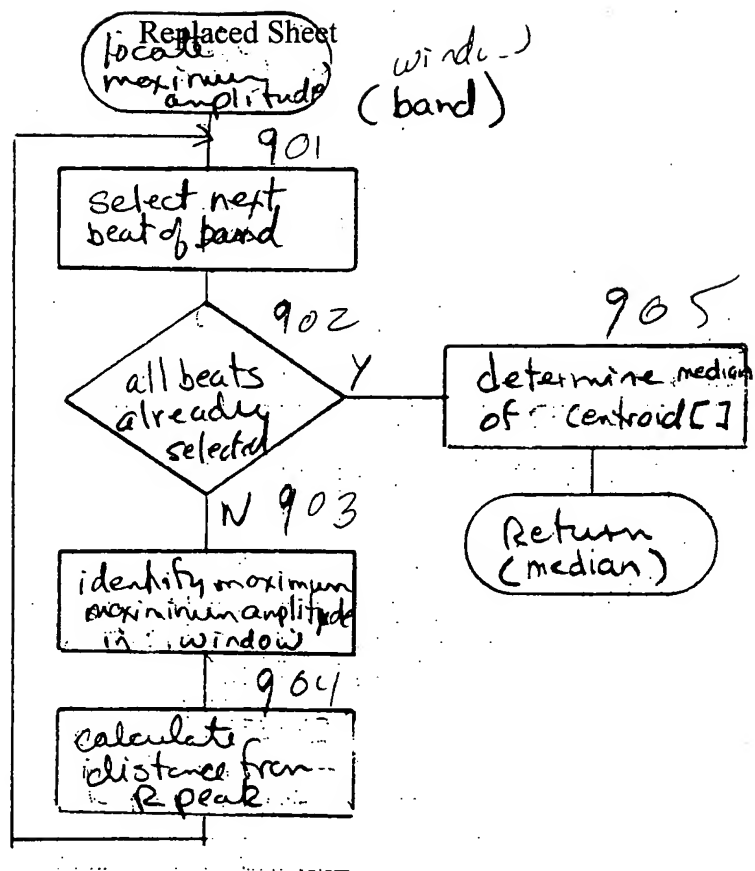 Replaced Sheet
locate
maximum
amplitude
(band)
901
select next
beat of band
902
all beats
already
selected
Y
905
determine median
of centroid[]
Return
(median)
N 903
identify maximum
maximum amplitude
in window
904
calculate
distance from
R peak